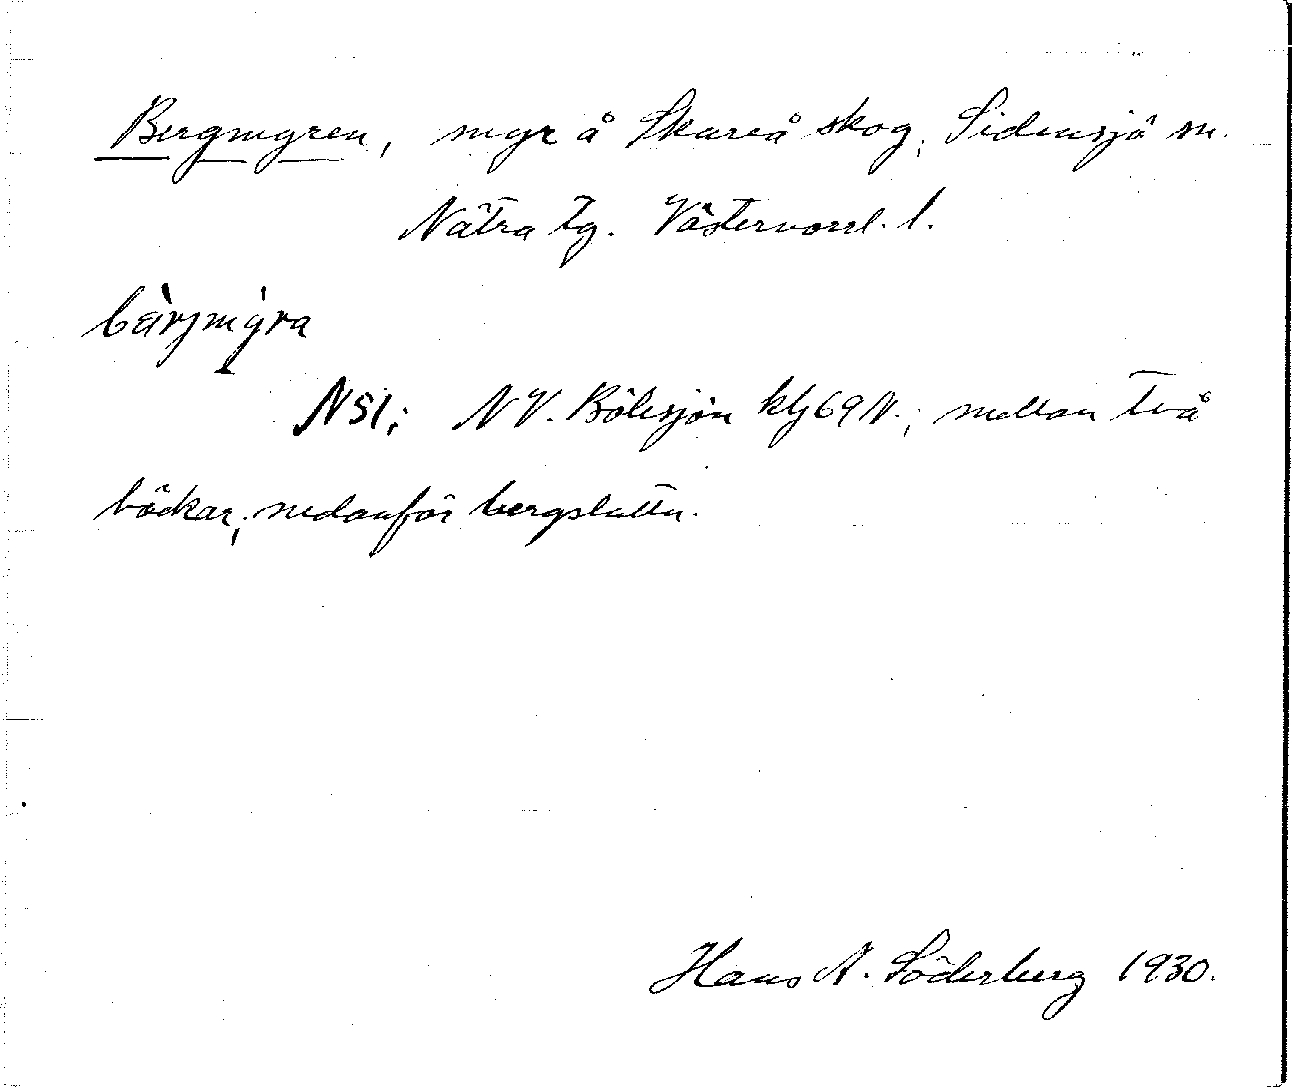 Bergmyren, myr å Skureå skog, Sidensjö sn.
Nätra tg. Västernorrl. l.
bärjmýra
NSl; NV. Bölesjön kbl 69 N.; mellan två
bäckar, nedanför bergslutten.
Hans A. Söderberg 1930.